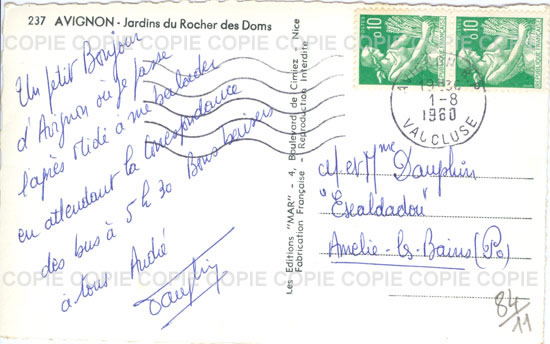 237 AVIGNON - Jardins du Rocher des Doms
Un petit Bonjour
d'Avignon où je passe
l'après Midi à me balader
en attendant la Correspondance
des bus à 5 h 30 Bons baisers
à tous André
Dauphin
Les Editions "MAR" - 4, Boulevard de Cimiez - Nice
Fabrication Française - Reproduction Interdite
0,10
0,10
1-8
1960
VAUCLUSE
M et Mme Dauphin
"Escaldadou"
Amélie-les-Bains (Po)
84/11
COPIE COPIE COPIE COPIE COPIE COPIE COPIE